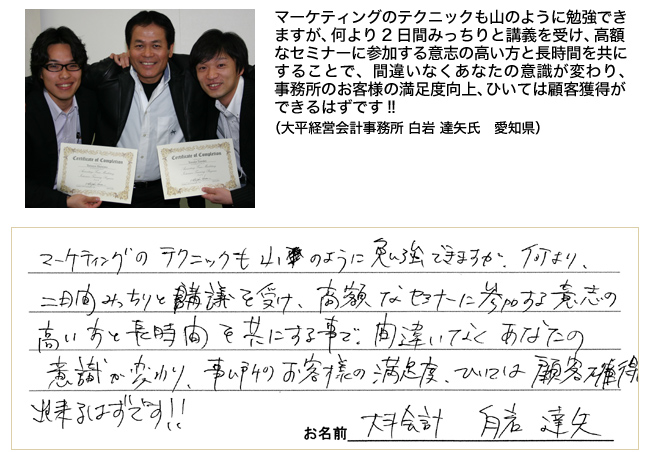 マーケティングのテクニックも山のように勉強でき
ますが、何より2日間みっちりと講義を受け、高額
なセミナーに参加する意志の高い方と長時間を共に
することで、間違いなくあなたの意識が変わり、
事務所のお客様の満足度向上、ひいては顧客獲得が
できるはずです!!
（大平経営会計事務所 白岩 達矢氏　愛知県）
Certificate of Completion
Certificate of Completion
マーケティングのテクニックも山のように勉強できますが、何より、
二日間みっちりと講議を受け、高額なセミナーに参加する意志の
高い方と長時間を共にする事で、間違いなくあなたの
意識が変わり、事ム所のお客様の満足度、ひいては顧客獲得
出来るはずです!!
お名前 会計 白岩 達矢